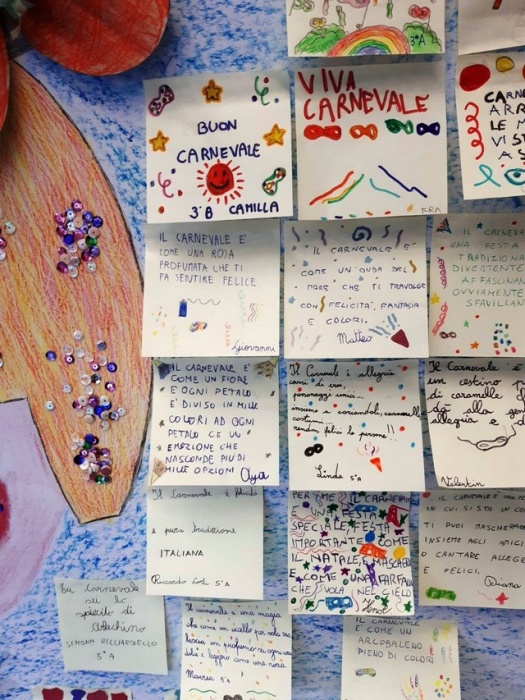 3°A
BUON
CARNEVALE
3°B CAMILLA
VIVA
CARNEVALE
FRA
CAR
ARR
LE M
VI S
A S
IL CARNEVALE E'
COME UNA ROSA
PROFUMATA CHE TI
FA SENTIRE FELICE
Giovanni
IL CARNEVALE E'
COME UN'ONDA DEL
MARE CHE TI TRAVOLGE
CON FELICITÀ, FANTASIA
E COLORI.
Matteo
IL CARNEVA
UNA FESTA
TRADIZIONA
DIVERTENTE
AFFASCINAN
OVVIAMENTE
SFAVILLAN
IL CARNEVALE E'
COME UN FIORE
E OGNI PETALO
E' DIVISO IN MILLE
COLORI AD OGNI
PETALO C'E UN
EMOZIONE CHE
NASCONDE PIU DI
MILLE OPZIONI
Il Carnevale è allegria
carri di
personaggi
insieme a coriandoli, caramelle
costumi...
rendon felici le persone!!
Linda 5°A
Il Carnevale è
un cestino p
di caramelle
dà alla gen
allegria e d
Valentin
Il Carnevale è felicità
e pura tradizione
ITALIANA
Riccardo 5°A
PER ME IL CARNEVALE
E' UNA FESTA
SPECIALE, FESTA
IMPORTANTE COME
IL NATALE, E MASCHERE
E COME UNA FARFALLA
CHE VOLA NEL CIELO
IL CARNEVALE È
IN CUI SI STA IN CO
TI PUOI MASCHERA
INSIEME AGLI AMICI
O CANTARE ALLEGR
E FELICI.
Diana
Carnevale
spirito di
Arlecchino
SIMONA RICCIARDIELLO
5°A
Il carnevale è una magia
che come un
lascia un profumo a ogni
dolce e leggero come una
5°A
IL CARNEVALE
E' COME UN
ARCOBALENO
PIENO DI COLORI